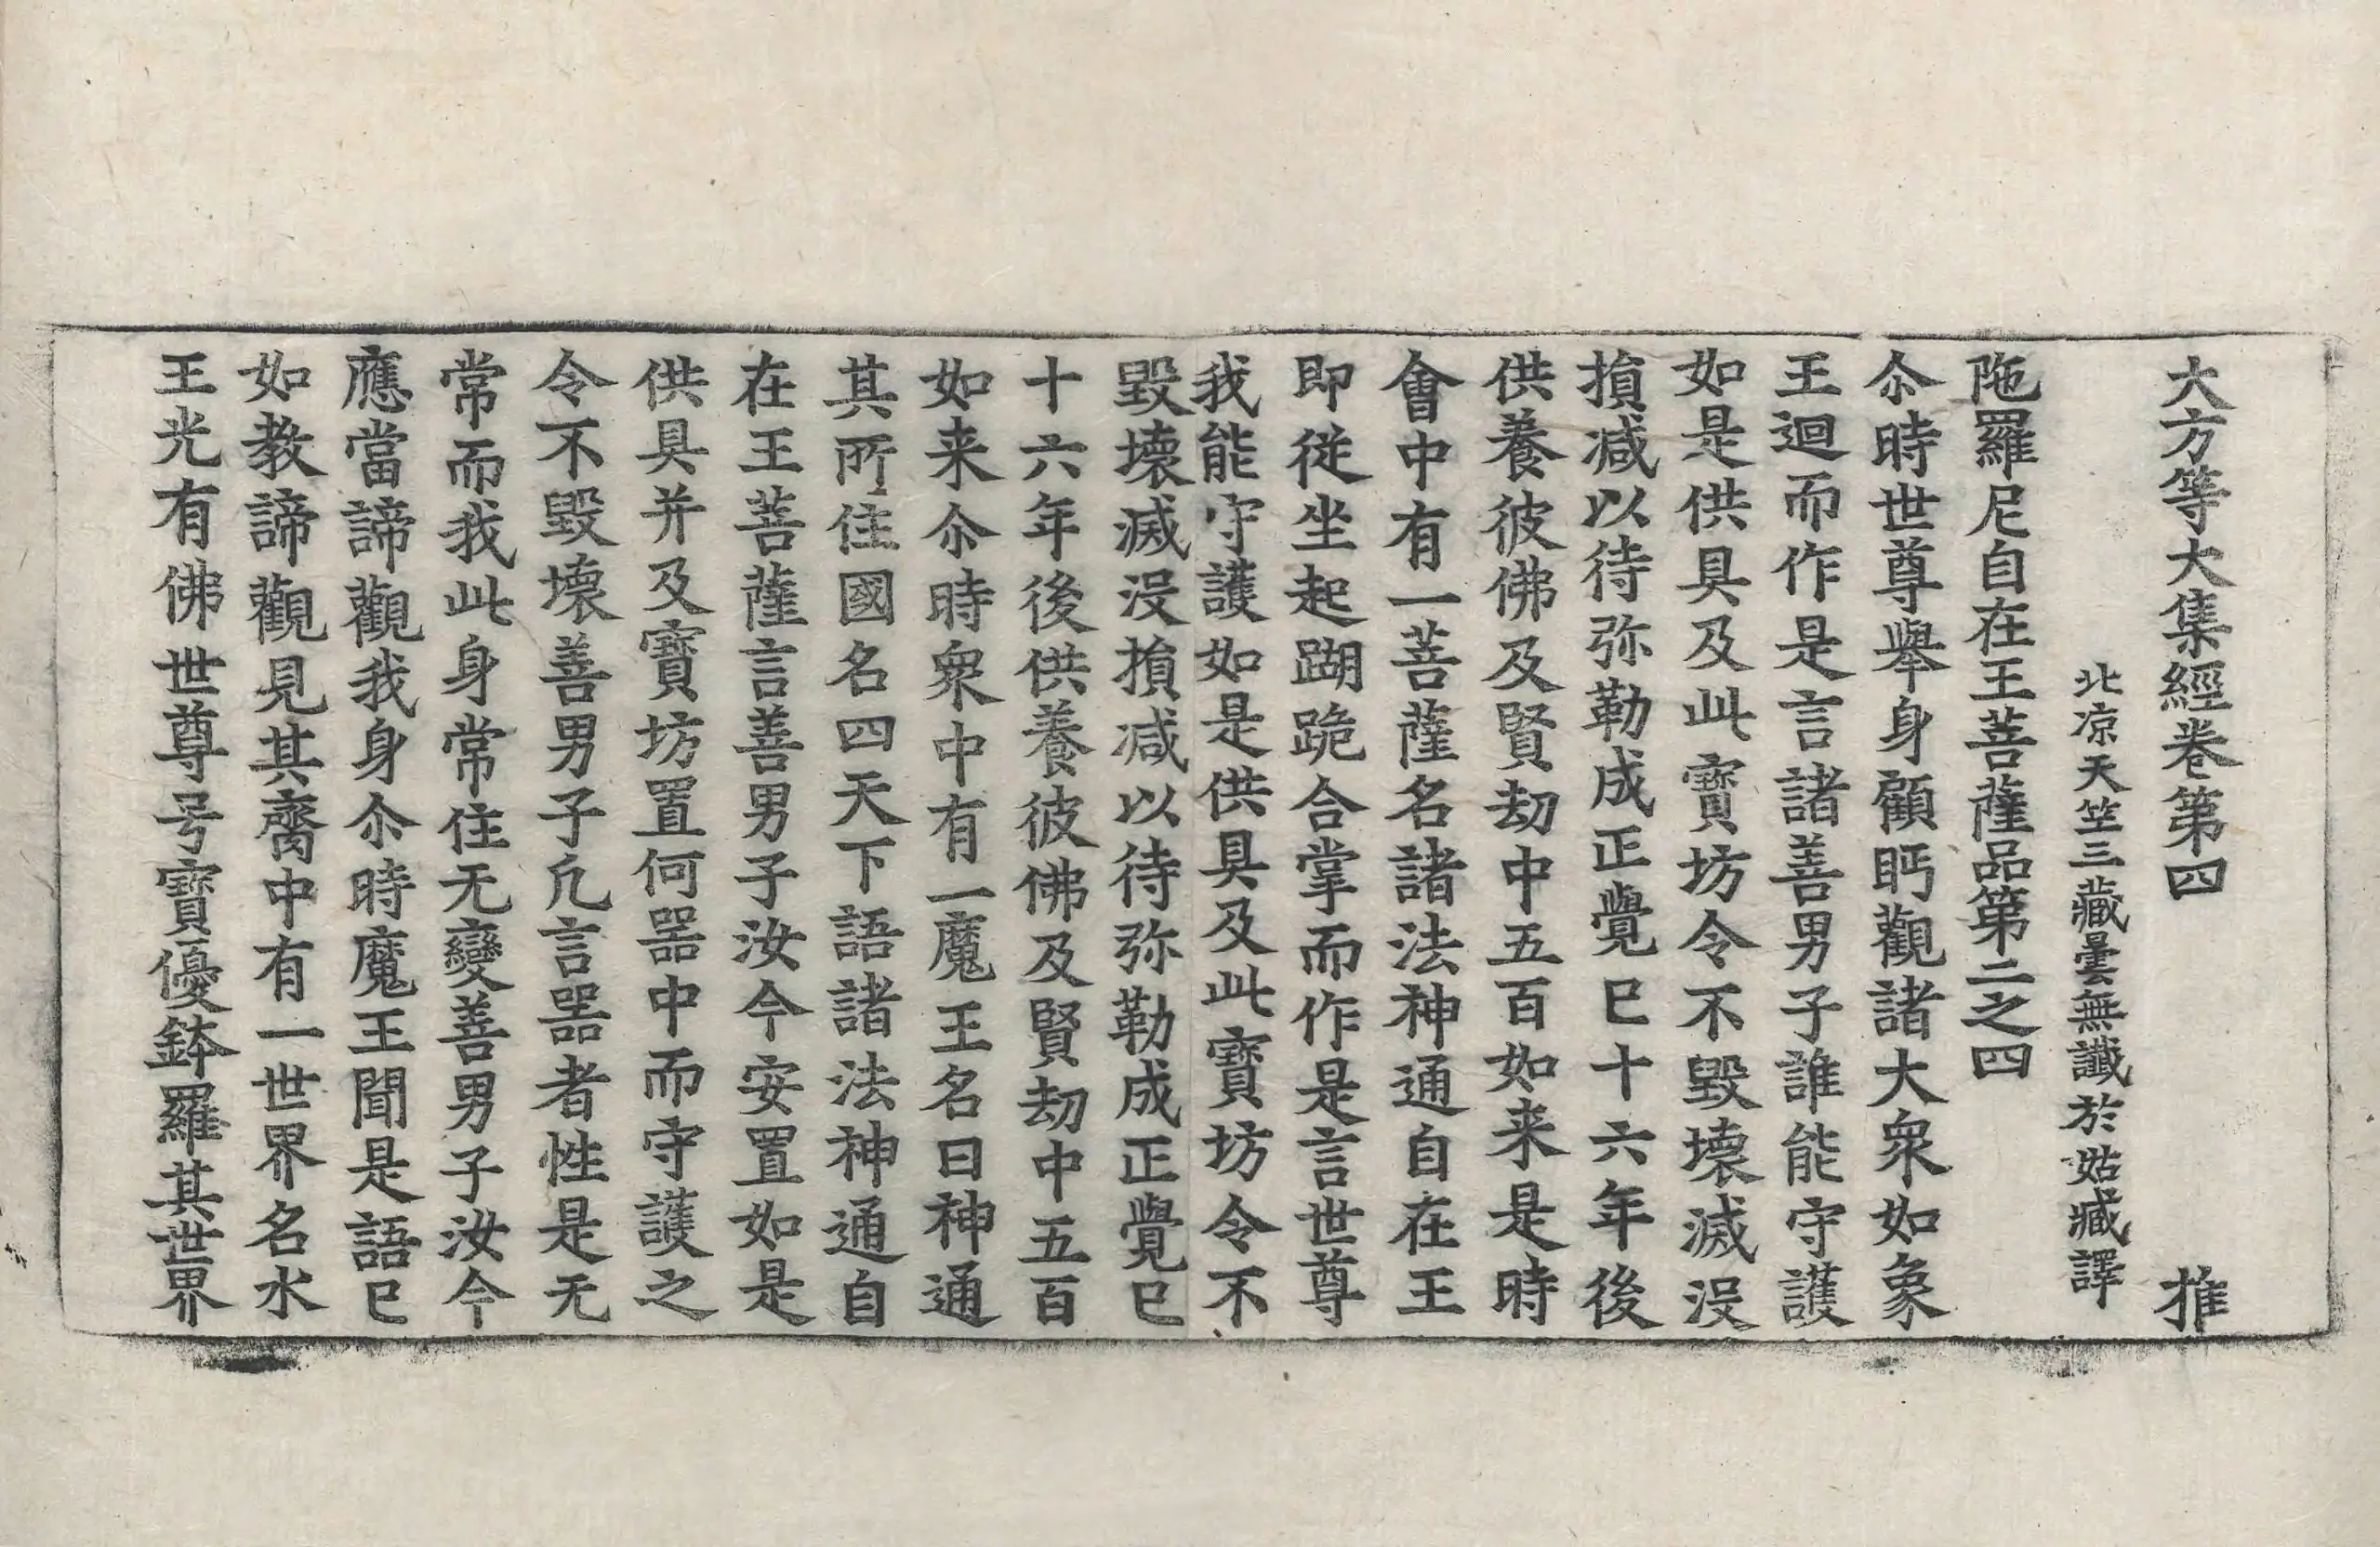 大方等大集經卷第四　推
北凉天竺三藏曇無讖於姑臧譯
陁羅尼自在王菩薩品第二之四
尒時世尊舉身顧眄觀諸大衆如象
王迴而作是言諸善男子誰能守護
如是供具及此寶坊令不毀壞滅没
損減以待弥勒成正覺已十六年後
供養彼佛及賢劫中五百如来是時
會中有一菩薩名諸法神通自在王
即從坐起䠒跪合掌而作是言世尊
我能守護如是供具及此寶坊令不
毀壞滅没損減以待弥勒成正覺已
十六年後供養彼佛及賢劫中五百
如来尒時衆中有一魔王名曰神通
其所住國名四天下語諸法神通自
在王菩薩言善男子汝今安置如是
供具并及寶坊置何器中而守護之
令不毀壞善男子凡言器者性是无
常而我此身常住无變善男子汝今
應當諦觀我身尒時魔王聞是語已
如教諦觀見其齎中有一世界名水
王光有佛世尊号寶優鉢羅其世界